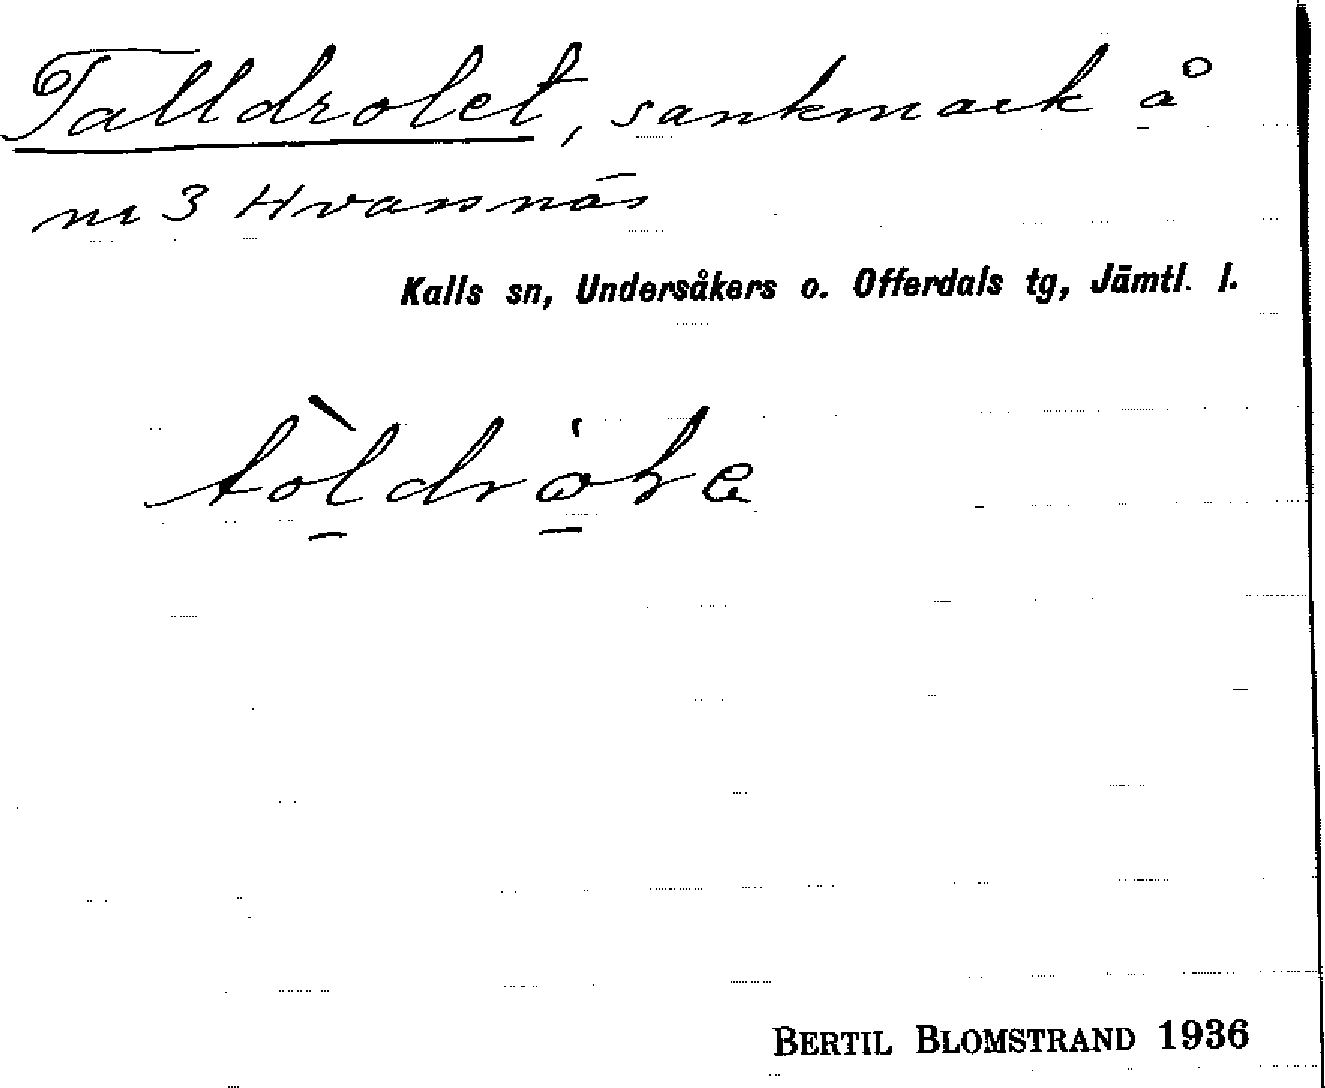 Talldrolet, sankmark å
nr 3 Hvassnäs
Kalls sn, Undersåkers o. Offerdals tg, Jämtl. l.
BERTIL BLOMSTRAND 1936